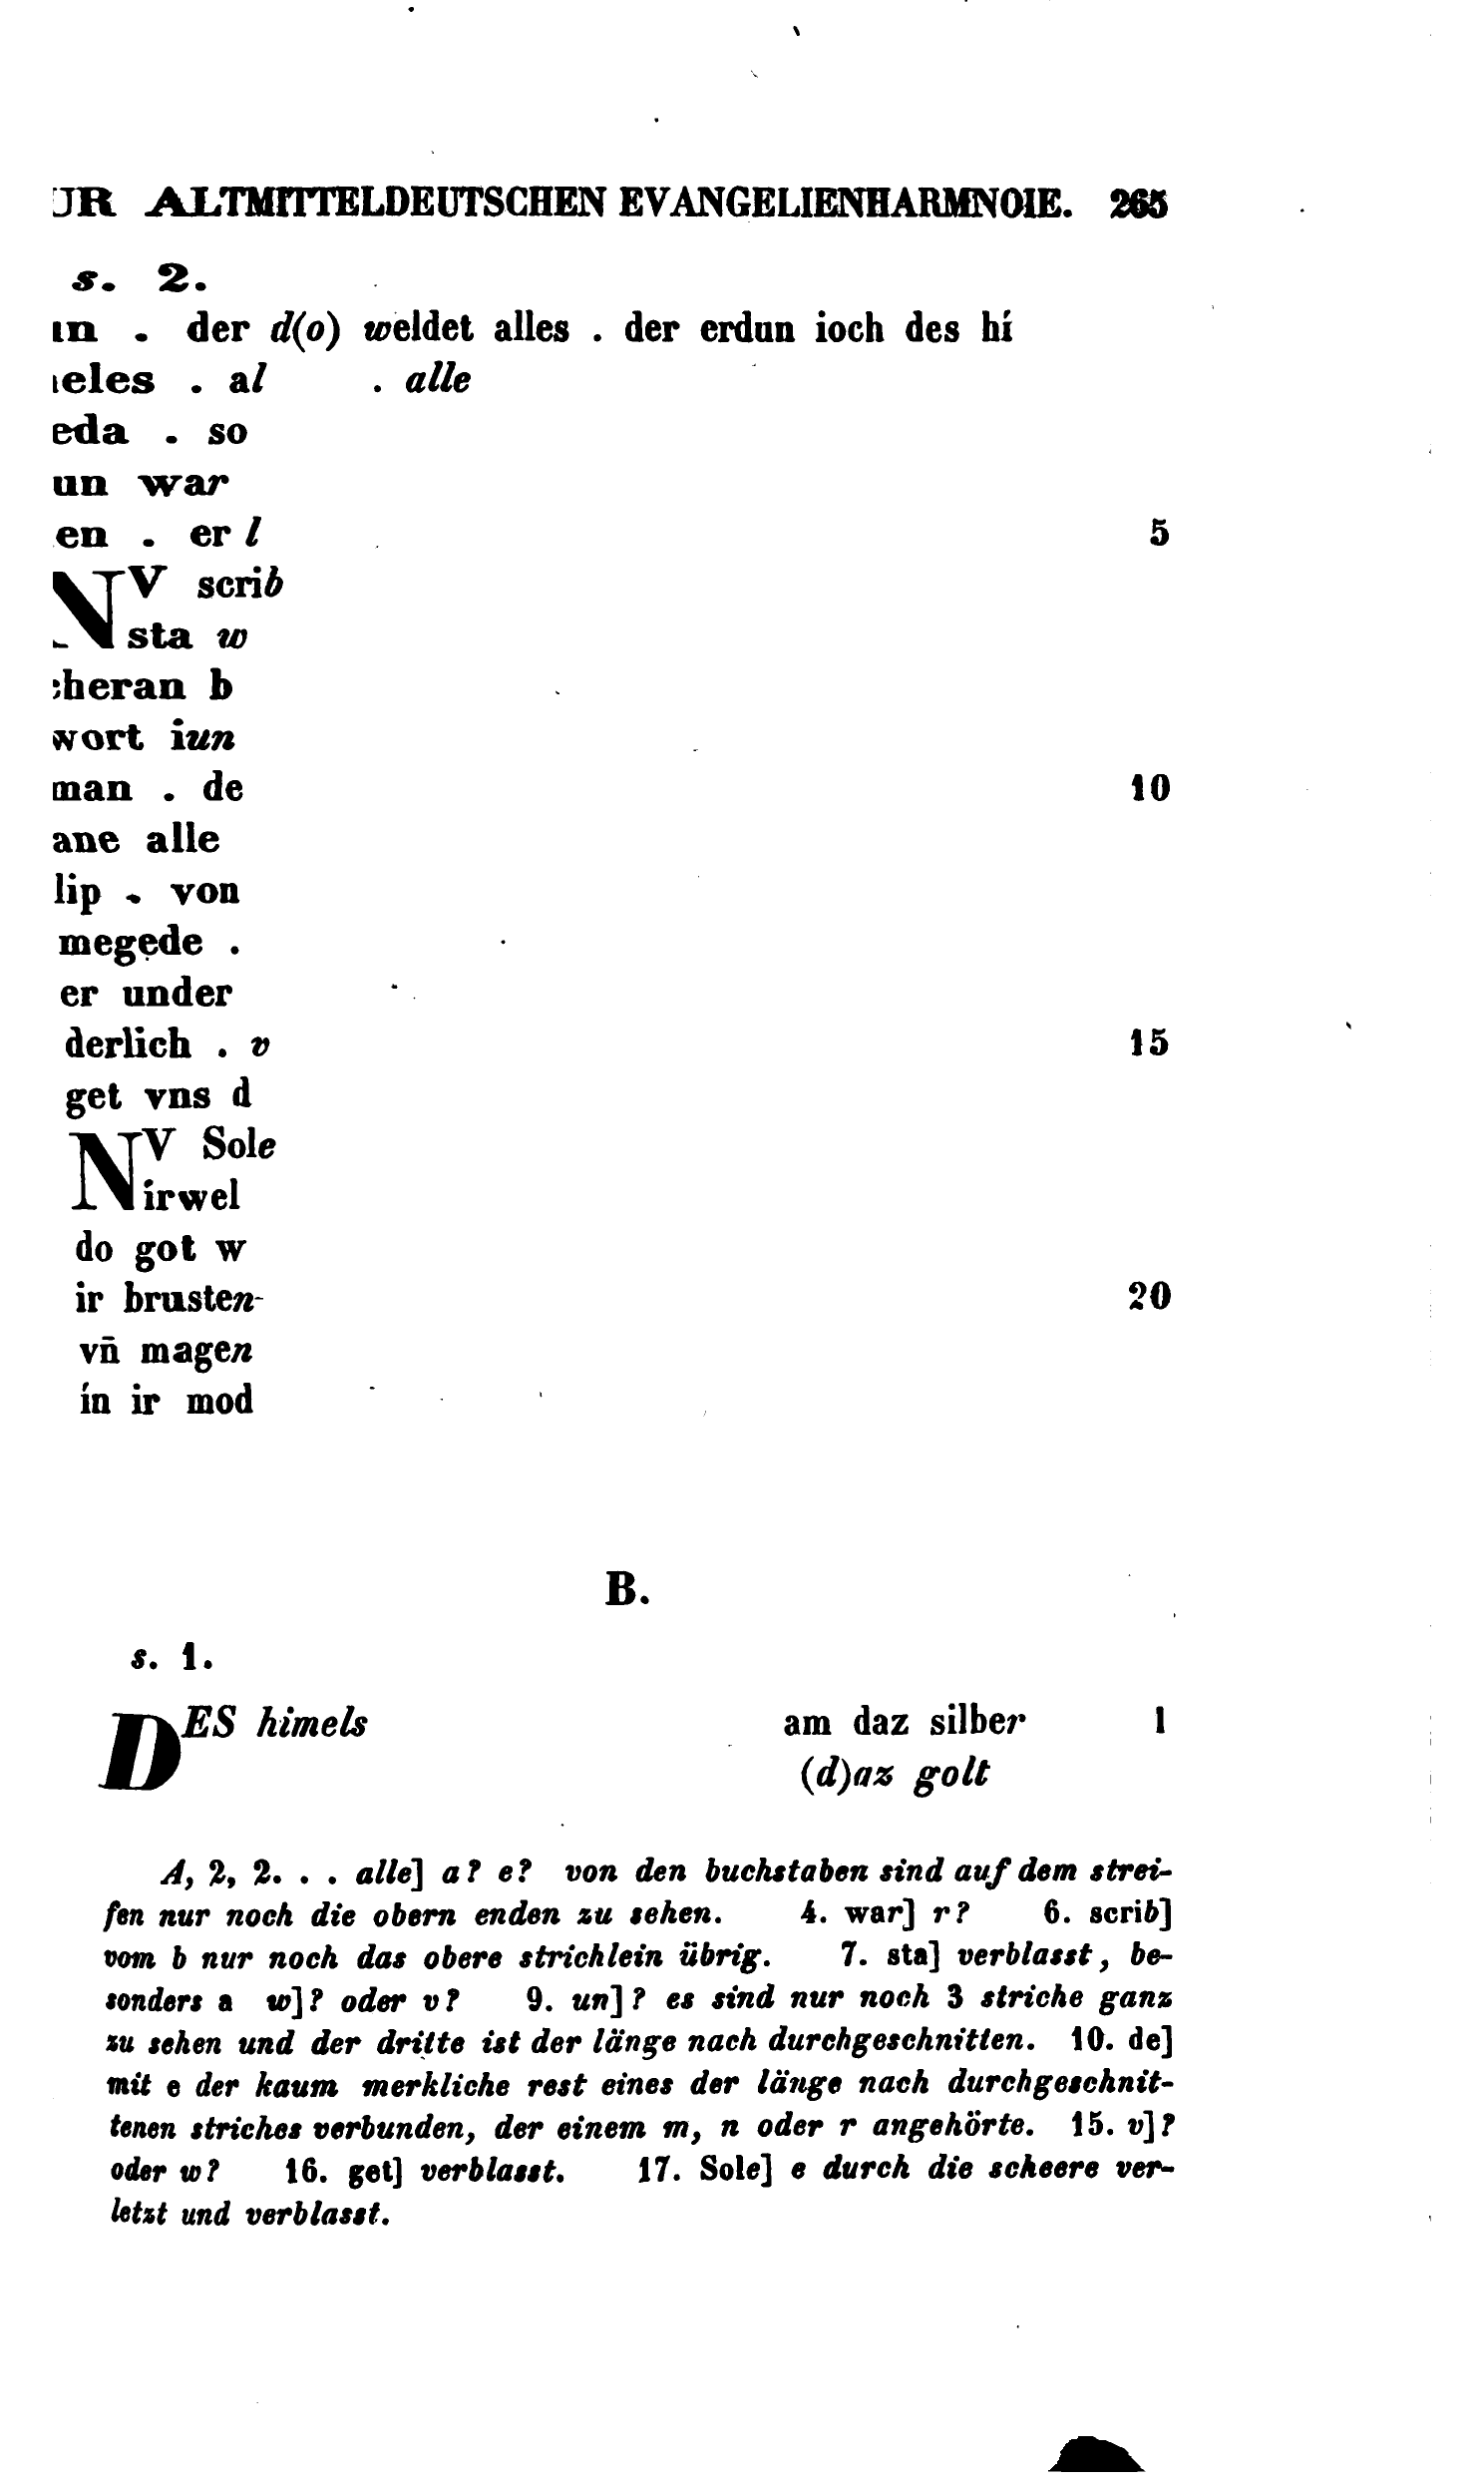 UR ALTMITTELDEUTSCHEN EVANGELIENHARMNOIE. 265
s. 2.
in . der d(o) weldet alles . der erdun ioch des hí
eles . al . alle
eda . so
un war
en . er l 5
NV scrib
sta w
heran b
wort iun
man . de 10
ane alle
lip . von
megede .
er under
derlich . v 15
get vns d
NV Sole
irwel
do got w
ir brusten 20
vn̄ magen
ín ir mod
B.
s. 1.
DES himels am daz silber 1
(d)az golt
A, 2, 2. . . alle] a? e? von den buchstaben sind auf dem strei-
fen nur noch die obern enden zu sehen. 4. war] r? 6. scrib]
vom b nur noch das obere strichlein übrig. 7. sta] verblasst, be-
sonders a w]? oder v? 9. un]? es sind nur noch 3 striche ganz
zu sehen und der dritte ist der länge nach durchgeschnitten. 10. de]
mit e der kaum merkliche rest eines der länge nach durchgeschnit-
tenen striches verbunden, der einem m, n oder r angehörte. 15. v]?
oder w? 16. get] verblasst. 17. Sole] e durch die scheere ver-
letzt und verblasst.